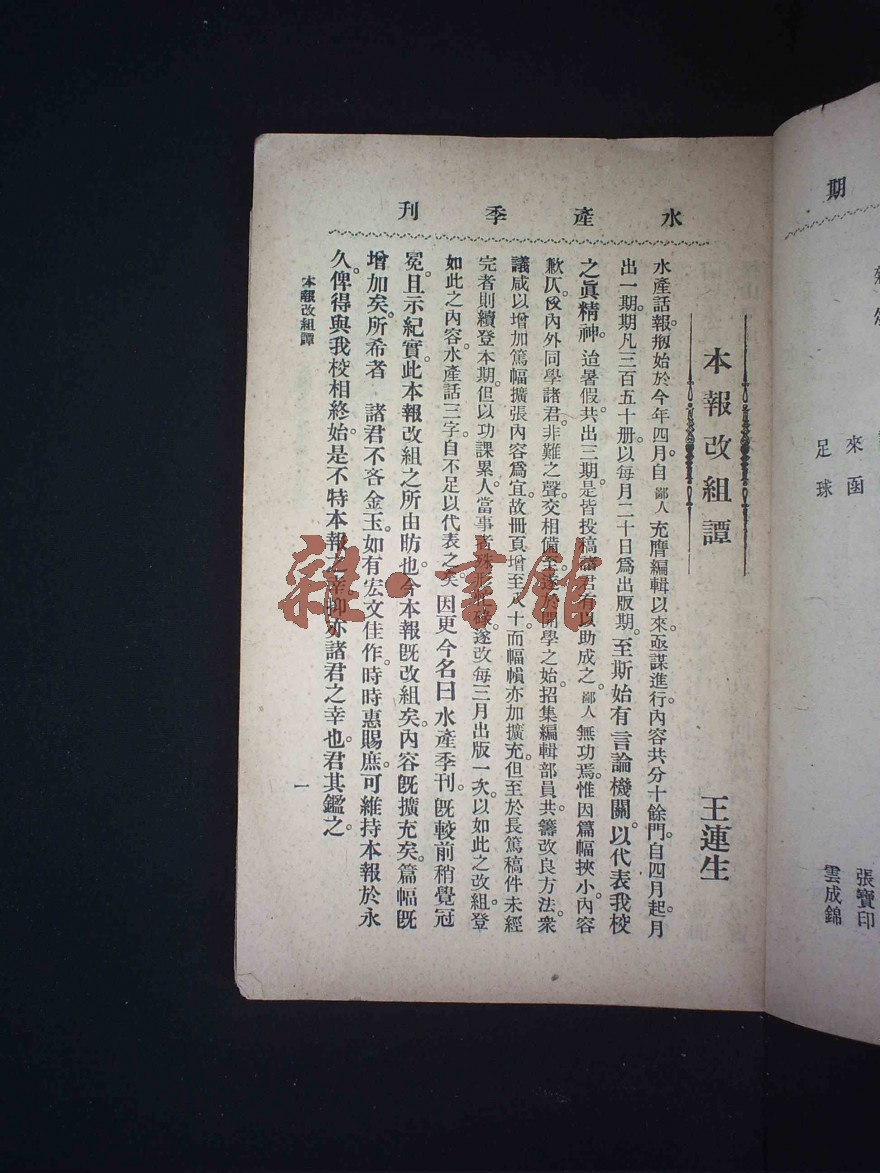 水產季刊
本報改組譚
王連生
水產話報。刱始於今年四月。自鄙人充膺編輯以來。亟謀進行。內容共分十餘門。自四月起。月
出一期。期凡三百五十册。以每月二十日爲出版期。至斯始有言論機關。以代表我校
之眞精神。迨暑假。共出三期。是皆投稿諸君有以助成之。鄙人無功焉。惟因篇幅挾小。內容
歉仄。內外同學諸君。非難之聲。交相備至。遂於開學之始。招集編輯部員。共籌改良方法。衆
議咸以增加篤幅。擴張內容爲宜。故冊頁增至八十。而幅幀亦加擴充。但至於長篤稿件。未經
完者。則續登本期。但以功課累人。當事者殊形忙碌。遂改每三月出版一次。以如此之改組。登
如此之內容。水產話三字。自不足以代表之矣。因更今名曰水產季刊。旣較前稍覺冠
冕。且示紀實。此本報改組之所由昉也。今本報旣改組矣。內容旣擴充矣。篇幅旣
增加矣。所希者 諸君不吝金玉。如有宏文佳作。時時惠賜。庶可維持本報於永
久。俾得與我校相終始。是不特本報之幸。抑亦諸君之幸也。君其鑑之。
本報改組譚
一
期
來函
足球
張寶印
雲成錦
雜·書館